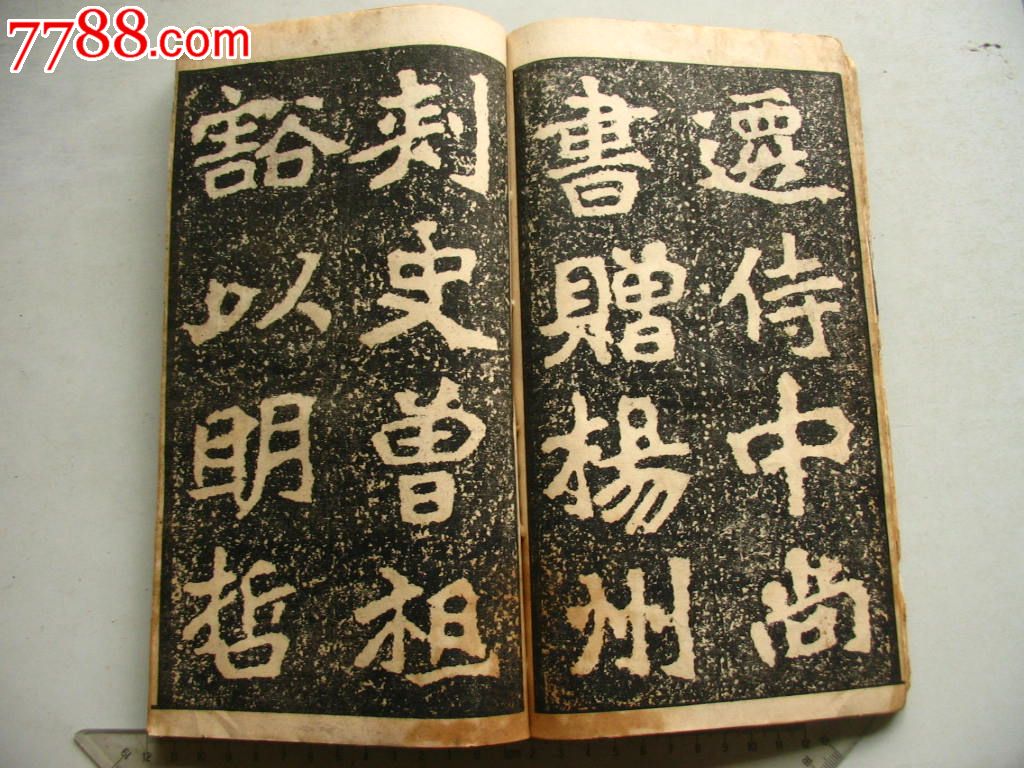 7788.com收藏
遷侍中尚
書贈楊州
刾史曾祖
豁以眀哲